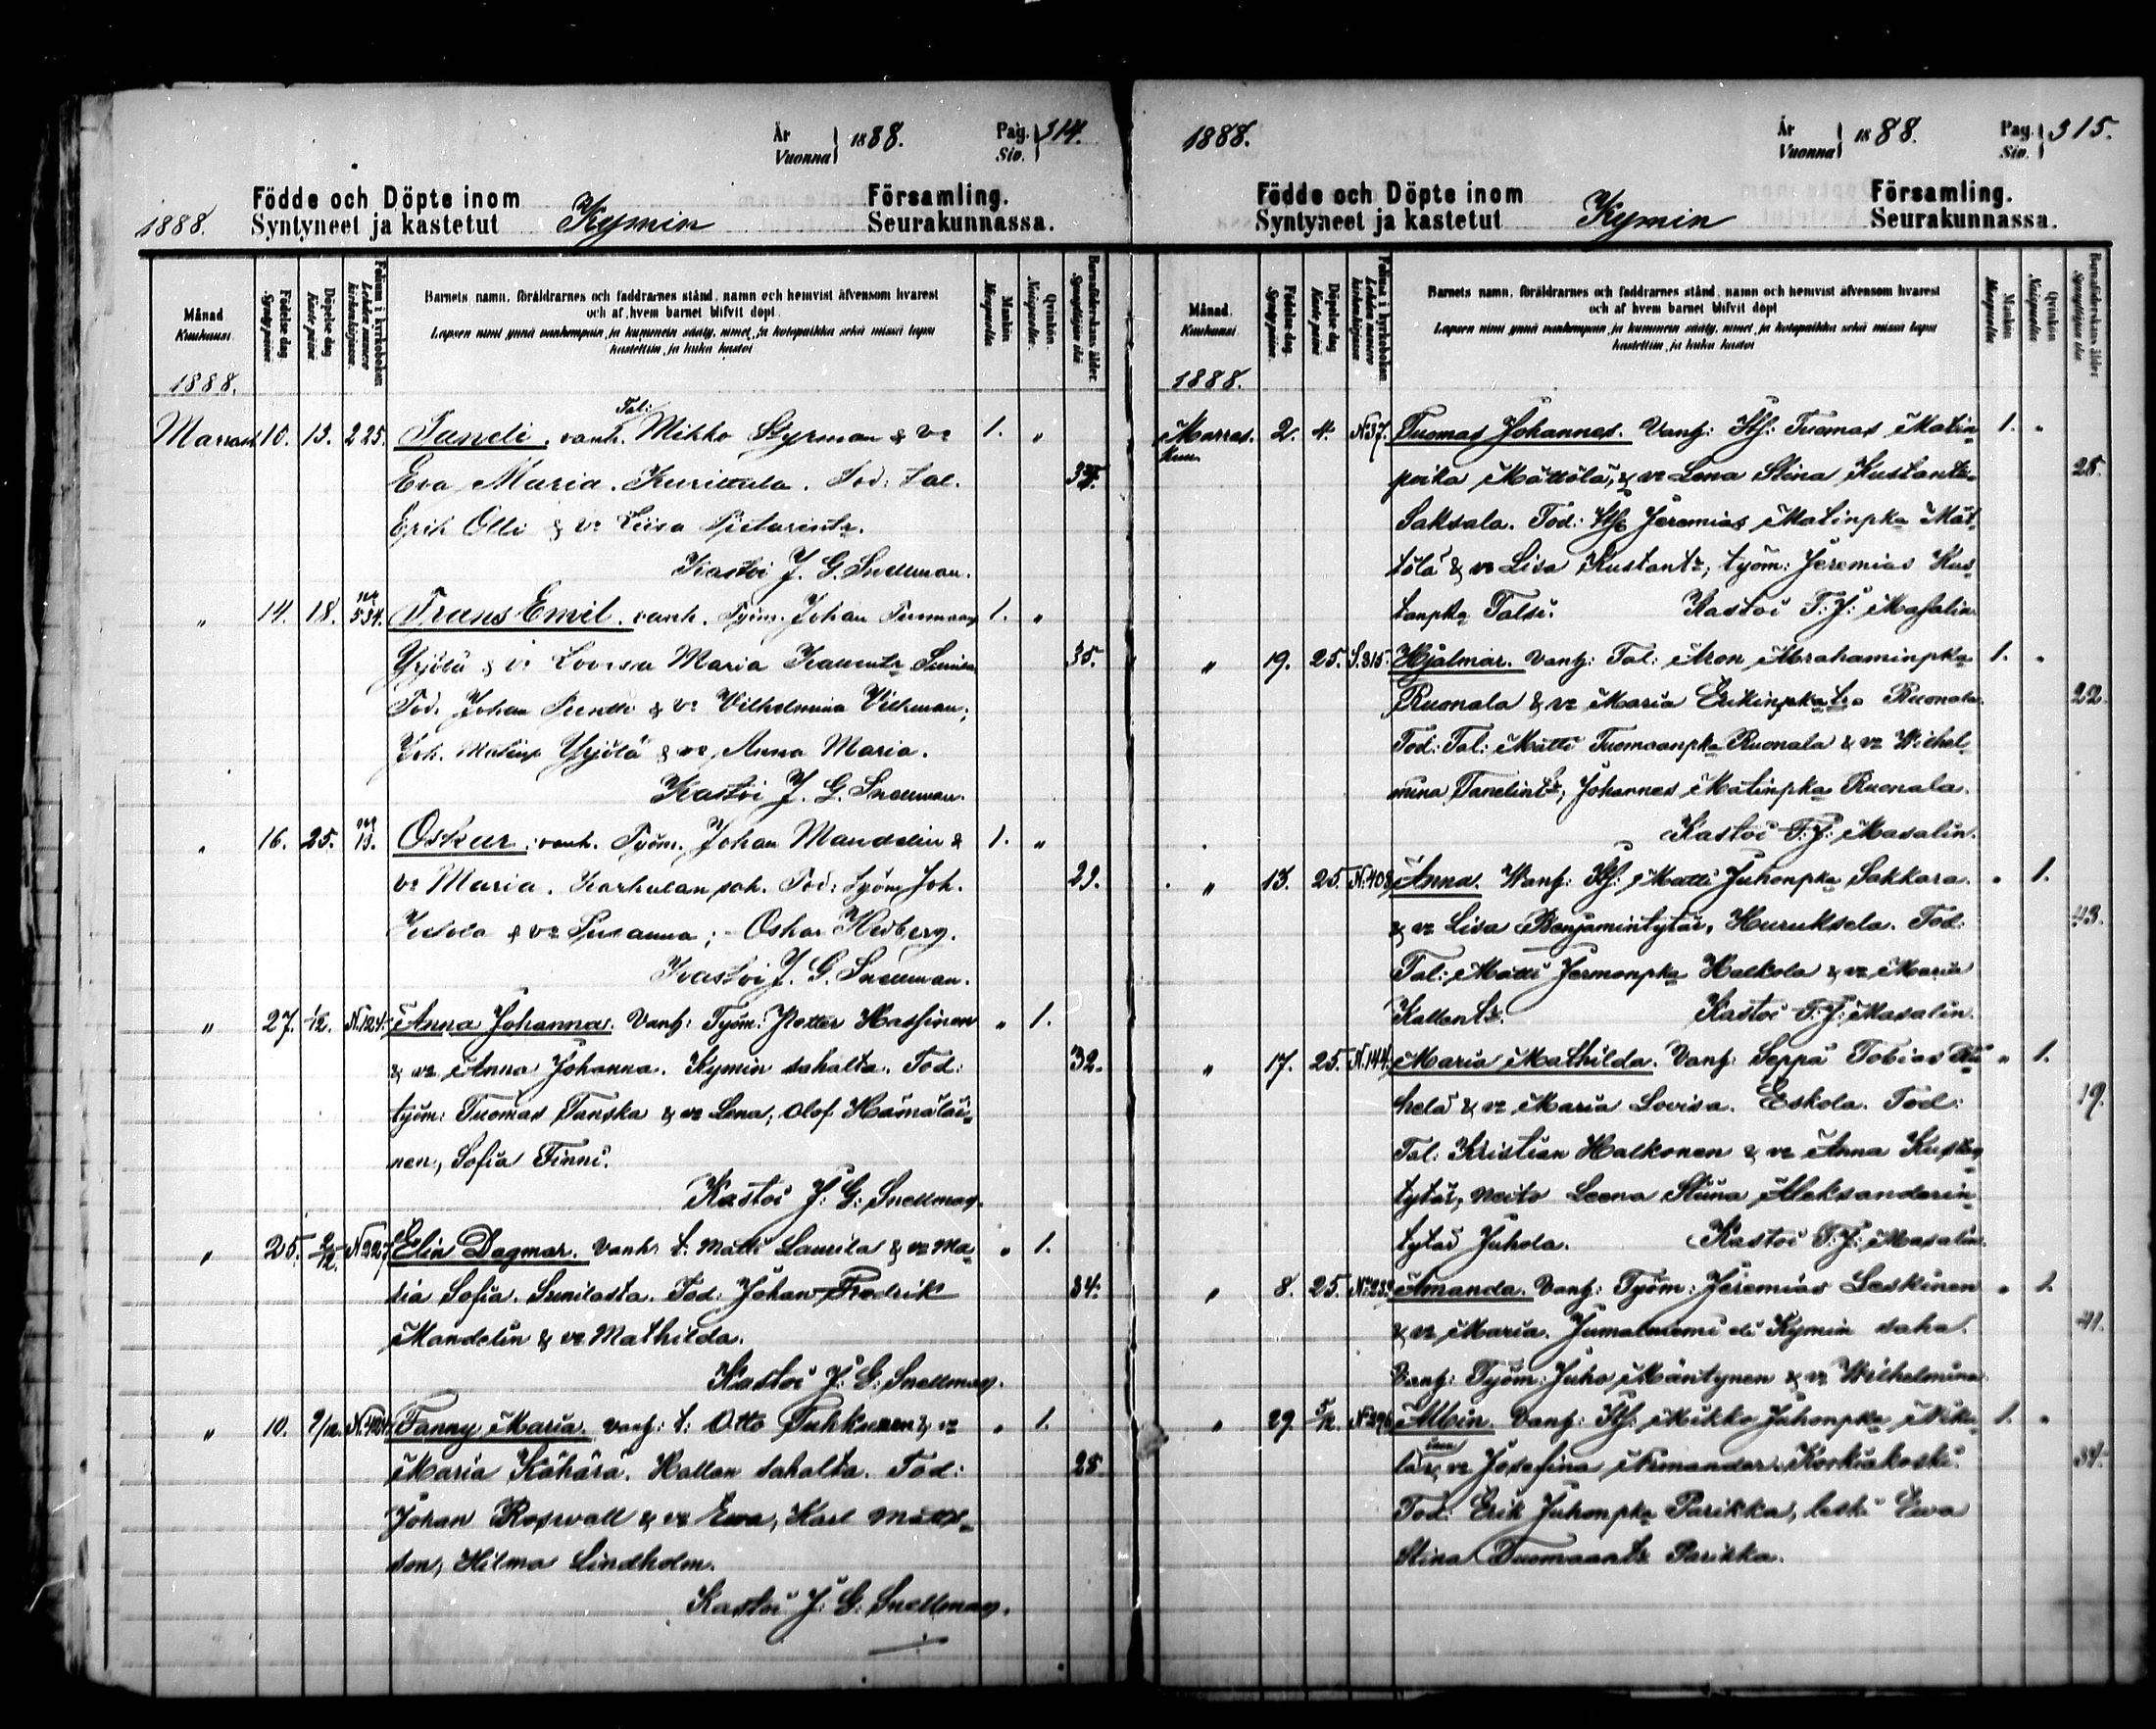 År 1888. Pag. 314.
Vuonna Siv.
Födde och Döpte inom Församling.
1888. Syntyneet ja kastetut Kymin Seurakunnassa.
Månad Kuukausi.
Födelse dag Syntypäivä.
Döpelse dag Kastepäivä
Folium i kyrkoboken Lehden numero kirkonkirjassa.
Barnets namn, föräldrarnes och faddrarnes stånd, namn och hemvist äfvensom hvarest
och af hvem barnet blifvit döpt.
Lapsen nimi ynnä vanhempain ja kummein sääty, nimet ja kotopaikka sekä missä lapsi
kastettiin ja kuka kastoi
Mankön Miespuolta
Qvinkön. Naispuolta.
Barnaföderskans ålder. Synnyttäjän ikä
1888.
Marrask. 10. 13. 225. Taneli. vanh. Tal: Mikko Styrman & vo 1. "
Eva Maria. Kurittula. Tod: tal.
Erik Olli & vo Liisa
Kastoi J. G. Snellman.
" 14. 18. 534. Frans Emil. vanh. Työm. Johan 1. "
Yrjölä & vo Lovisa Maria Sunila 35.
Tod. Johan & vo Vilhelmina Vilkman;
Joh. Matinp Yrjölä & vo Anna Maria.
Kastoi J. G. Snellman.
" 16. 25. 13. Oskar. vanh. Työm. Johan Mandelin & 1. "
vo Maria. Karhulan sah. Tod: työm Joh. 29.
& vo Susanna; Oskar Hedberg.
Kastoi J. G. Snellman.
" 27. 1/12. N. 124. Anna Johanna. Vanh: Työm: Petter Hassinen " 1.
& vo Anna Johanna. Kymin sahalta. Tod: 32.
työm: Tuomas Tanska & vo Lena, Olof Hämäläi-
nen, Sofia Finni.
Kastoi J: G: Snellman.
" 25. 2/12. N. 227. Elin Dagmar. Vanh. t. Matti Laurila & vo Ma- " 1.
ria Sofia. Sunilasta. Tod: Johan Fredrik 34.
Mandelin & vo Mathilda.
Kastoi J: G: Snellman.
" 10. 9/12. Fanny Maria. Vanh: t: Otto Tuhkunen & vo " 1.
Maria Kähärä. Hallan sahalta. Tod: 25
Johan Roswall & vo Ewa, Karl Matts-
son, Hilma Lindholm.
Kastoi J: G: Snellman.
1888. År 1888. Pag. 315.
Vuonna Siv.
Födde och Döpte inom Församling.
Syntyneet ja kastetut Kymin Seurakunnassa.
Månad Kuukausi.
Födelse dag. Syntypäivä.
Döpelse dag Kastepäivä
Folium i kyrkoboken Lehden numero kirkonkirjassa.
Barnets namn, föräldrarnes och faddrarnes stånd, namn och hemvist äfvensom hvarest
och af hvem barnet blifvit döpt
Lapsen nimi ynnä vanhempain ja kummein sääty, nimet ja kotopaikka sekä missä lapsi
kastettiin ja kuka kastoi
Mankön Miespuolta
Qvinkön Naispuolta.
Barnaföderskans ålder Synnyttäjän ikä
1888.
Marras- 2. 4. N:37. Tuomas Johannes. Vanh: Itf: Tuomas Matin 1. "
kuu poika Mättölä, & vo Lena Stina Kustantr. 25.
Saksala. Tod: Itf: Jeremias Matinpka Mät-
tölä & vo Lisa Kustantr, työm: Jeremias Kus-
tanpka Talsi. Kastoi F: J: Masalin
" 19. 25. S. 315. Hjalmar. Vanh: Tal: Aron Abrahaminpka 1. "
Ruonala & vo Maria Ruonala. 22.
Tod: Tal: Matti Tuomaanpka Ruonala & vo Wilhel-
mina Tanelintr, Johannes Matinpka Ruonala.
Kastoi F: J: Masalin.
" 13. 25. N. 408 Anna. Wanh: Itf: Matti Juhonpka Sakkara. " 1.
& vo Lisa Benjamintytär, Huruksela. Tod: 43.
Tal: Matti Jermonpka Halkola & vo Maria
Kallentr. Kastoi F: J: Masalin.
" 17. 25. N. 144. Maria Mathilda. Vanh: Seppä Tobias " 1.
helä & vo Maria Lovisa. Eskola. Tod: 19.
Tal: Kristian Halkonen & vo Anna
tytär, neito Leena Stiina Aleksanderin
tytär Juhola. Kastoi F: J: Masalin.
" 8. 25. Amanda. Vanh: Työm: Jeremias Leskinen " 1.
& vo Maria. Jumalniemi eli Kymin saha. 41.
Vanh: Työm: Juho Mäntynen & vo Wilhelmina
" 29. 5/12. N. 296 Albin. Vanh: Itf: Mikko Juhonpka 1. "
vo Josefina Korkiakoski. 34.
Tod: Erik Juhonpka Parikka, leski Ewa
Stina Tuomaantr Parikka.